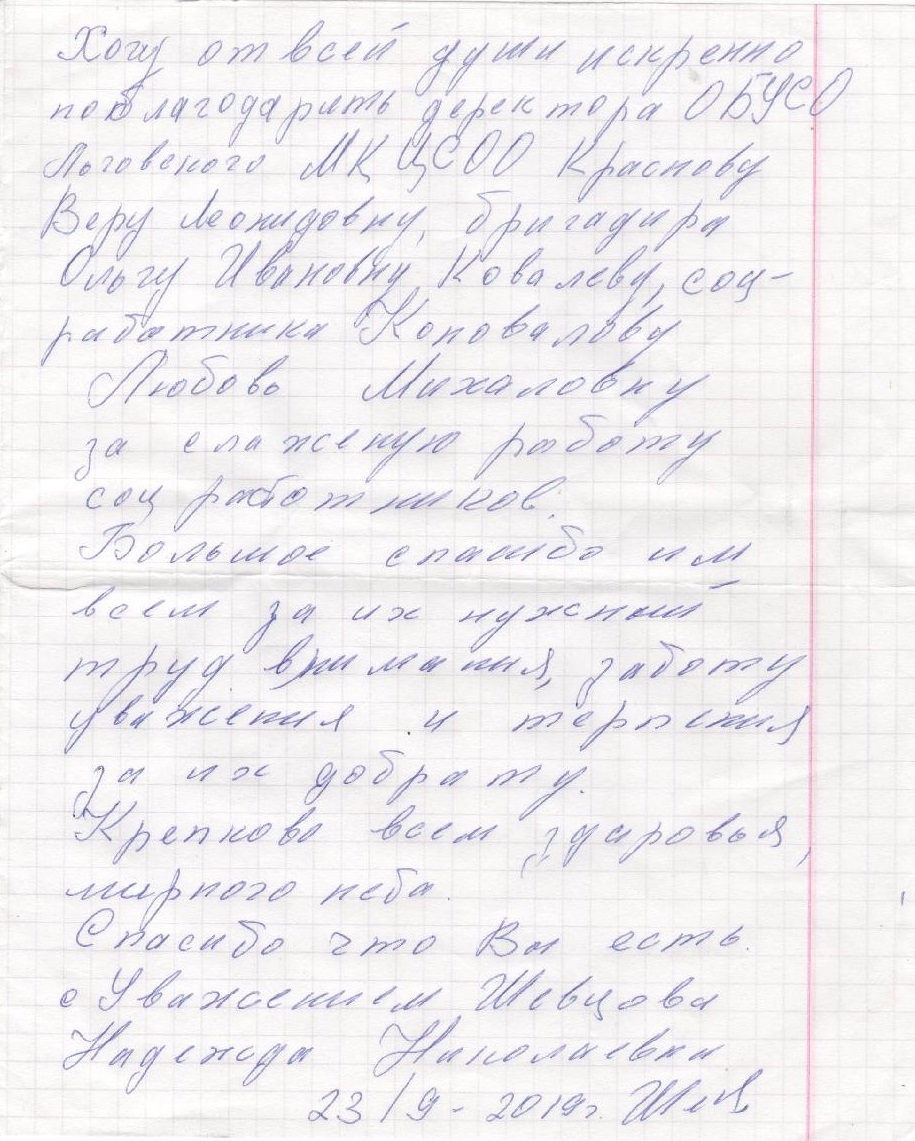 Хочу от всей души искренно
поблагодарить деректора ОБУСО
Льговского МКЦСОО Краснову
Веру Леонидовну, бригадира
Ольгу Ивановну Ковалеву, соц-
работника Коновалову
Любовь Михаловну
за слаженую работу
соц работников.
Большое спасибо им
всем за их нужный
труд внимания, заботу
уважения и терпения
за их доброту.
Крепково всем здоровья,
мирного неба.
Спасибо что Вы есть.
с Уважением Шевцова
Надежда Николаевна
23/9-2019г.